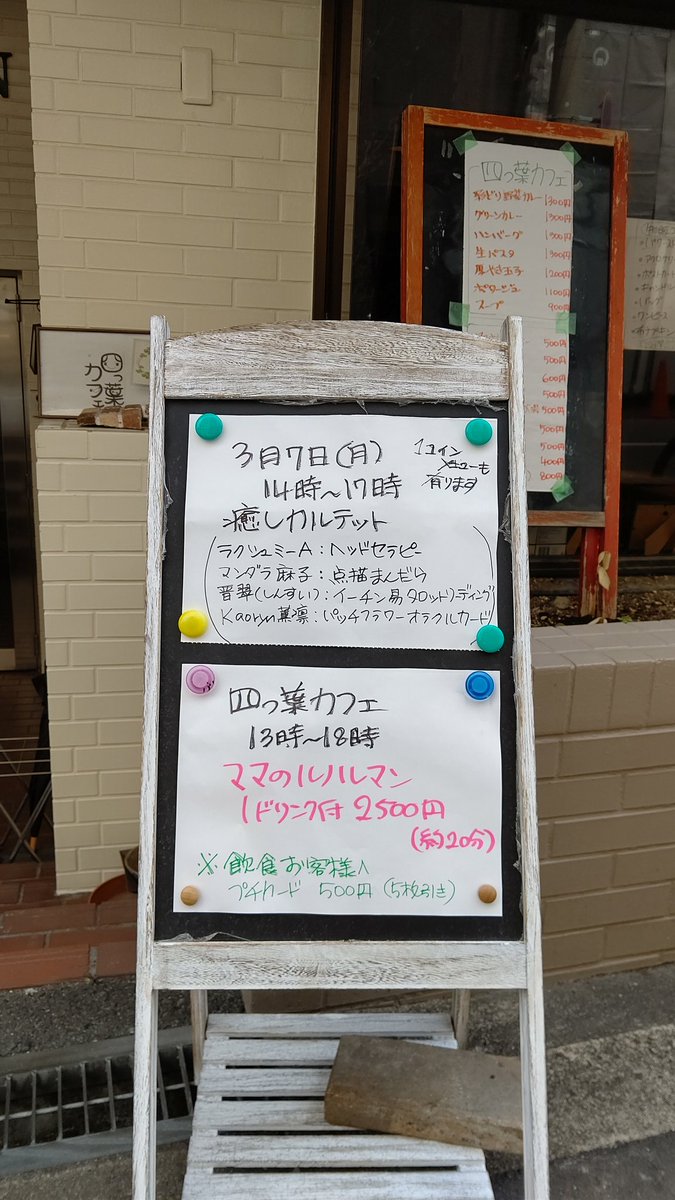 四つ葉カフェ
彩どり野菜カレー 1300円
グリーンカレー 1300円
ハンバーグ 1300円
生パスタ 1300円
厚やき玉子 1200円
ポタージュ 1100円
スープ 900円
500円
500円
600円
500円
500円
500円
500円
400円
800円
四つ葉
カフェ
3月7日(月)
14時〜17時
1コイン
メニューも
有ります
癒しカルテット
ラクシュミーA:ヘッドセラピー
マンダラ麻子:点描まんだら
晋翠(しんすい):イーチン易タロットリーディング
Kaoryn薫凛:バッチフラワーオラクルカード
四つ葉カフェ
13時〜18時
ママのルノルマン
1ドリンク付 2500円
(約20分)
※飲食お客様へ
プチカード 500円(5枚引き)